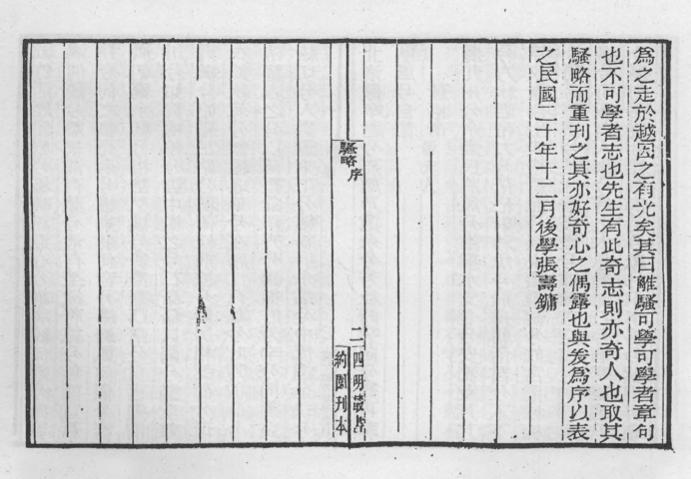 為之走於越因之有光矣其曰離騷可學可學者章句
也不可學者志也先生有此奇志則亦奇人也取其
騷略而重刊之其亦好奇心之偶露也與爰為序以表
之民國二十年十二月後學張壽鏞
騷略 序
二
四明叢書
約園刊本